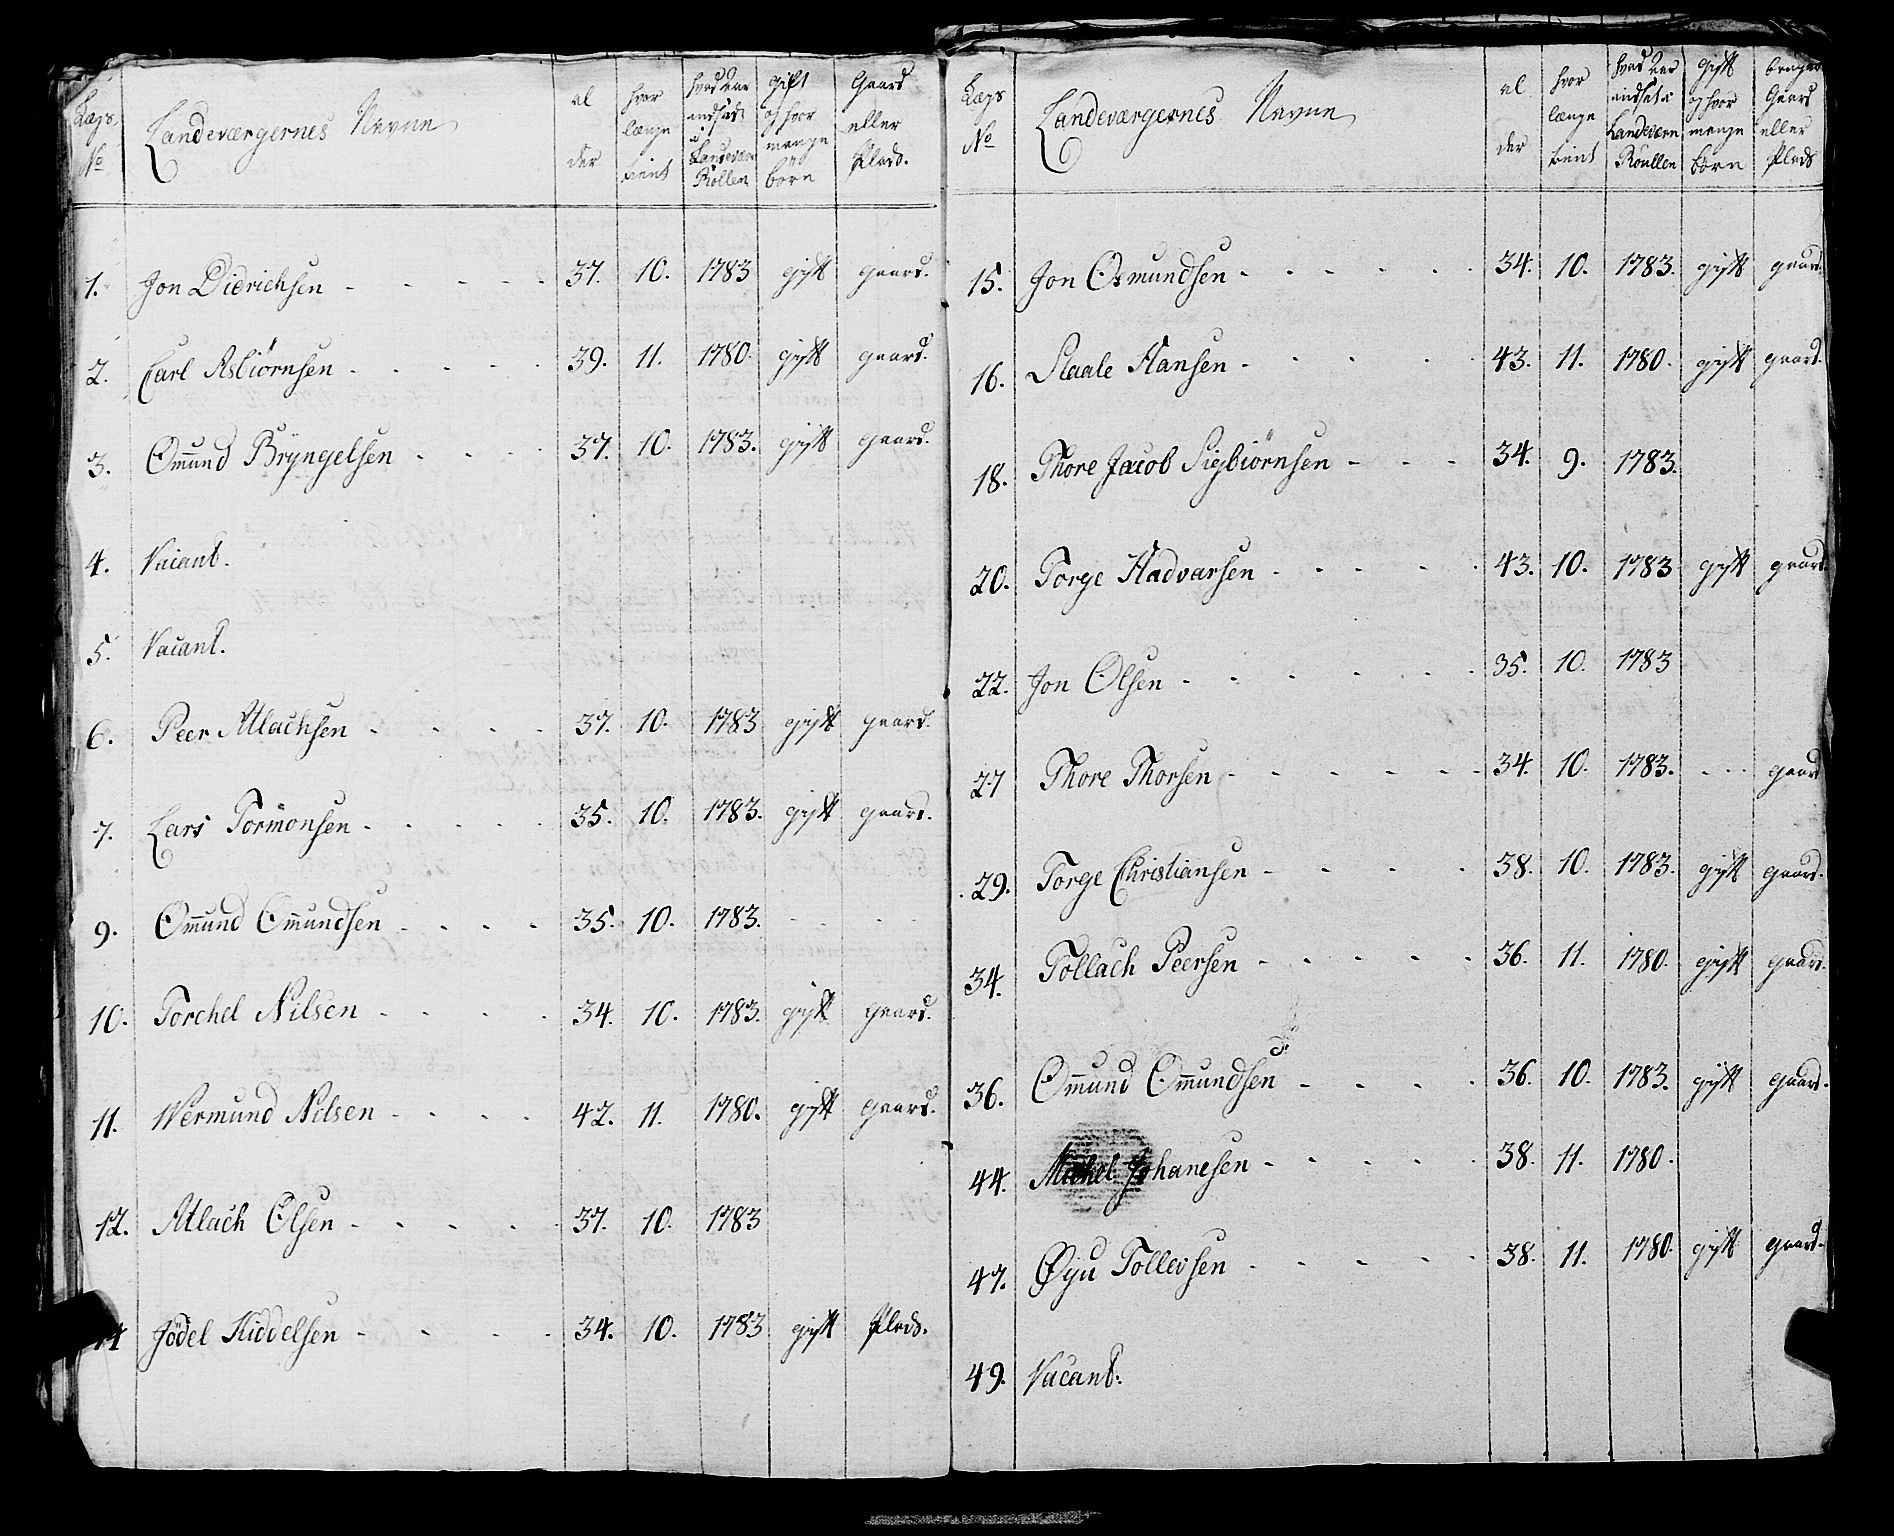 Lægs No | Landeværgernes Navne | al der | hvor længe tient | hvad Aar indsadt i Landeværn Rollen | gift og hvor mange börn | Gaard eller Plads.
1. Jon Didrichsen - - - - - 37. 10. 1783 gift gaard.
2. Carl Asbiörnsen - - - - - 39. 11. 1780. gift gaard.
3. Om̄und Bryngelsen - - - - 37. 10. 1783. gift gaard.
4. Vacant.
5. Vacant.
6. Peer Atlachsen - - - - 37. 10. 1783 gift gaard.
7. Lars Tormonsen - - - - - 35. 10. 1783. gift gaard.
9. Om̄und Om̄undsen - - - - 35. 10. 1783. - -
10. Torchel Nilsen - - - - 34. 10. 1783. gift gaard.
11. Wermund Nilsen - - - - 42. 11. 1780. gift gaard.
12. Atlach Olsen - - - - - 37. 10. 1783
14 Jödel Kiddelsen - - - - 34. 10. 1783 gift Plads.
Lægs No | Landeværgernes Navne | al der | hvor længe tient | hvad Aar indsat i Landeværn Roullen | gift og hvor mange börn | Gaard eller Plads
15. Jon Osmundsen - - - - - - 34. 10. 1783. gift gaard.
16. Staale Hansen - - - - - 43. 11. 1780. gift gaard.
18. Thore Jacob Sigbiörnsen - - - 34. 9. 1783.
20. Torge Hadvarsen - - - - - 43. 10. 1783 gift gaard.
22. Jon Olsen - - - - - - 35. 10. 1783
27 Thore Thorsen - - - - - - 34. 10. 1783. - - - gaard
29. Torge Christiansen - - - - 38. 10. 1783. gift gaard.
34. Tollach Peersen - - - - - 36. 11. 1780. gift gaard.
36. Om̄und Om̄undsen - - - - 36. 10. 1783. gift gaard.
44. Michel Johanesen - - - - - 38. 11. 1780.
47. Øyu Tollevsen - - - - - 38. 11. 1780. gift gaard.
49. Vacant.